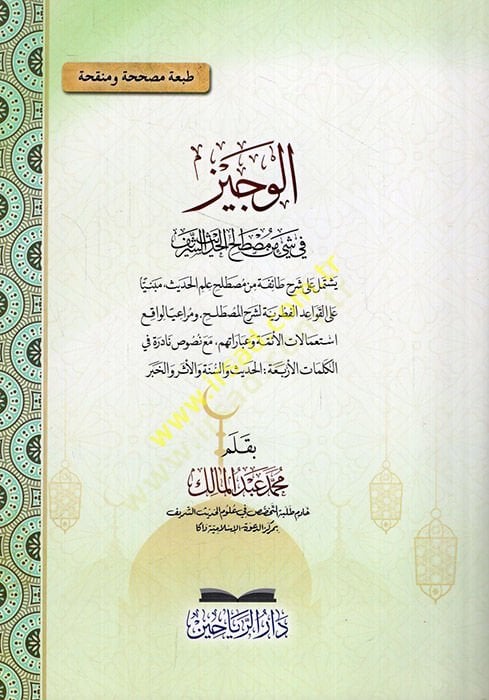 طبعة مصححة ومنقحة
الوجيز
في شيء من مصطلح الحديث الشريف
يشتمل على شرح طائفة من مصطلح علم الحديث، مبنيًا
على القواعد الفطرية لشرح المصطلح، ومراعيًا لواقع
استعمالات الأئمة وعباراتهم، مع نصوص نادرة في
الكلمات الأربعة: الحديث والسنة والأثر والخبر
بقلم
محمد عبد المالك
خادم طلبة التخصص في علوم الحديث الشريف
بمركز الدعوة الإسلامية داكا
دار الرياحين